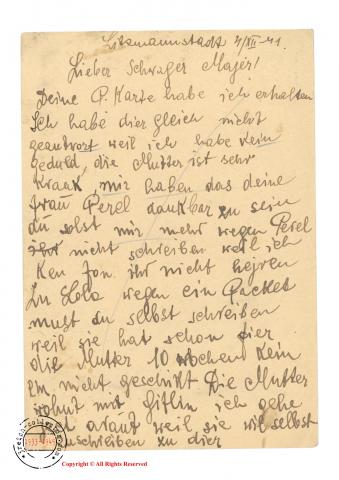 Litzmannstadt 4/XII-41.
Lieber Schwager Majer!
Deine P. Karte habe ich erhalten
Ich habe dier gleich nicht
geantwort weil ich habe kein
geduld, die Mutter ist sehr
Kraak, mir haben das deine
frau Perel dankbar zu sein
du solst mir mehr wegen Perel
nicht schreiben weil ich
Ken fon ihr nicht hejren
Zu Lola wegen ein Packet
must du selbst schreiben
weil sie hat schon dier
die Mutter 10 wochen kein
nicht geschikt Die Mutter
wohnt mit Gitlin ich gehe
arauf weil sie wil selbst
schreiben zu dier
1933-1945
Copyright © All Rights Reserved